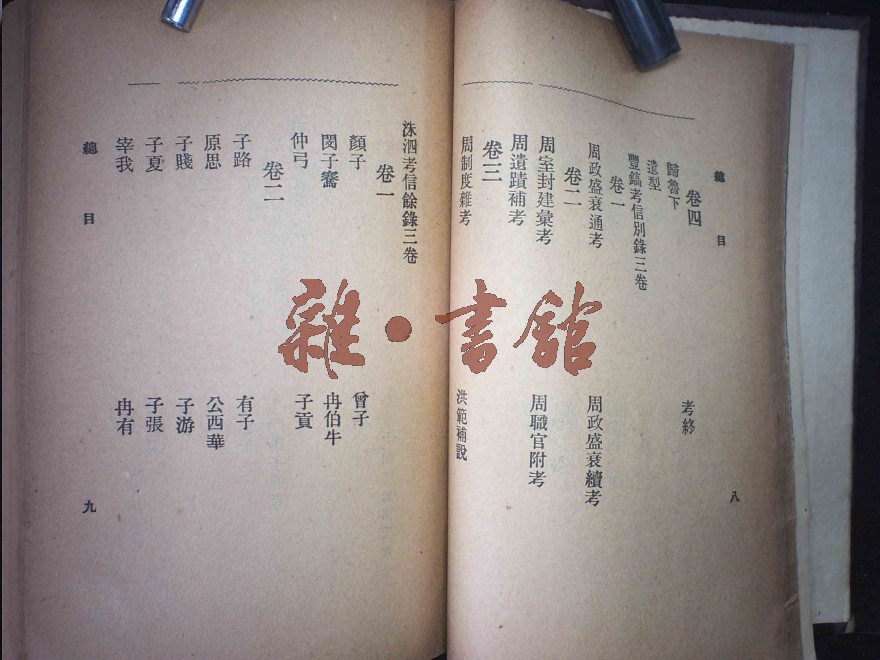 總目
卷四
歸魯下
考終
遺型
豐鎬考信別錄三卷
卷一
周政盛衰通考
周政盛衰續考
卷二
周室封建彙考
周職官附考
周遺蹟補考
卷三
周制度雜考
洪範補說
八
洙泗考信餘錄三卷
卷一
顏子
曾子
閔子騫
冉伯牛
仲弓
子貢
卷二
子路
有子
原思
公西華
子賤
子游
子夏
子張
宰我
冉有
總目
九
雜·書館